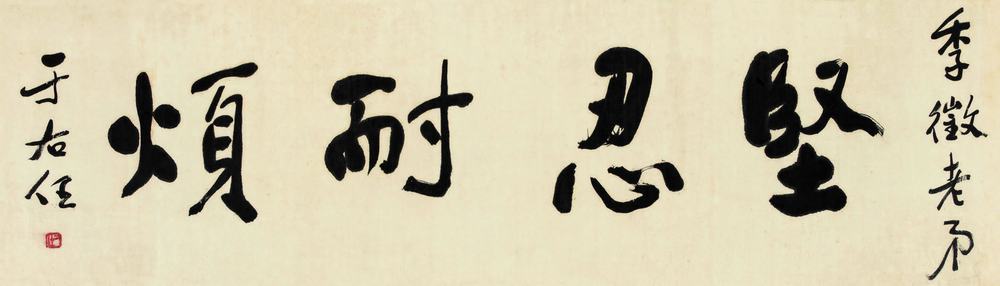 季徵老弟
堅忍耐煩
于右任